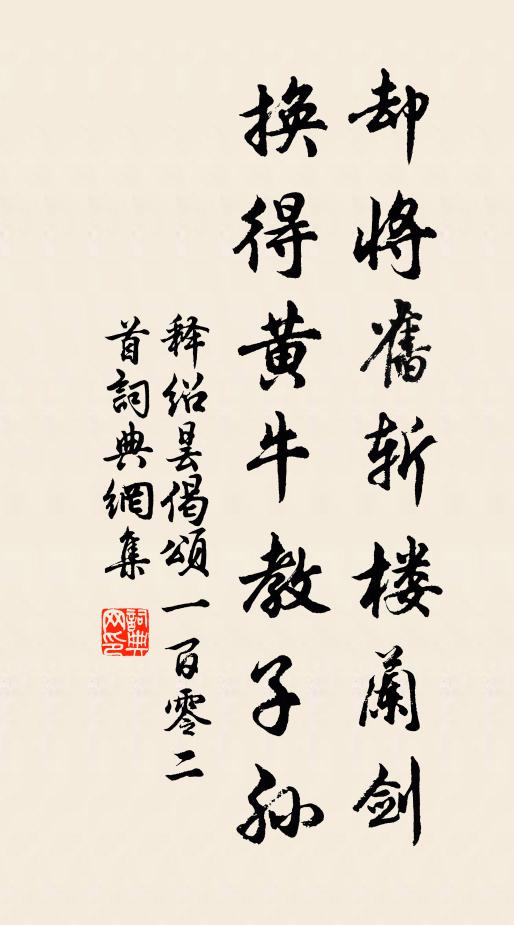 却将舊斩楼蘭剑
换得黄牛教子孙
释绍昙偈颂一百零二
首詞典網集
詞典网印